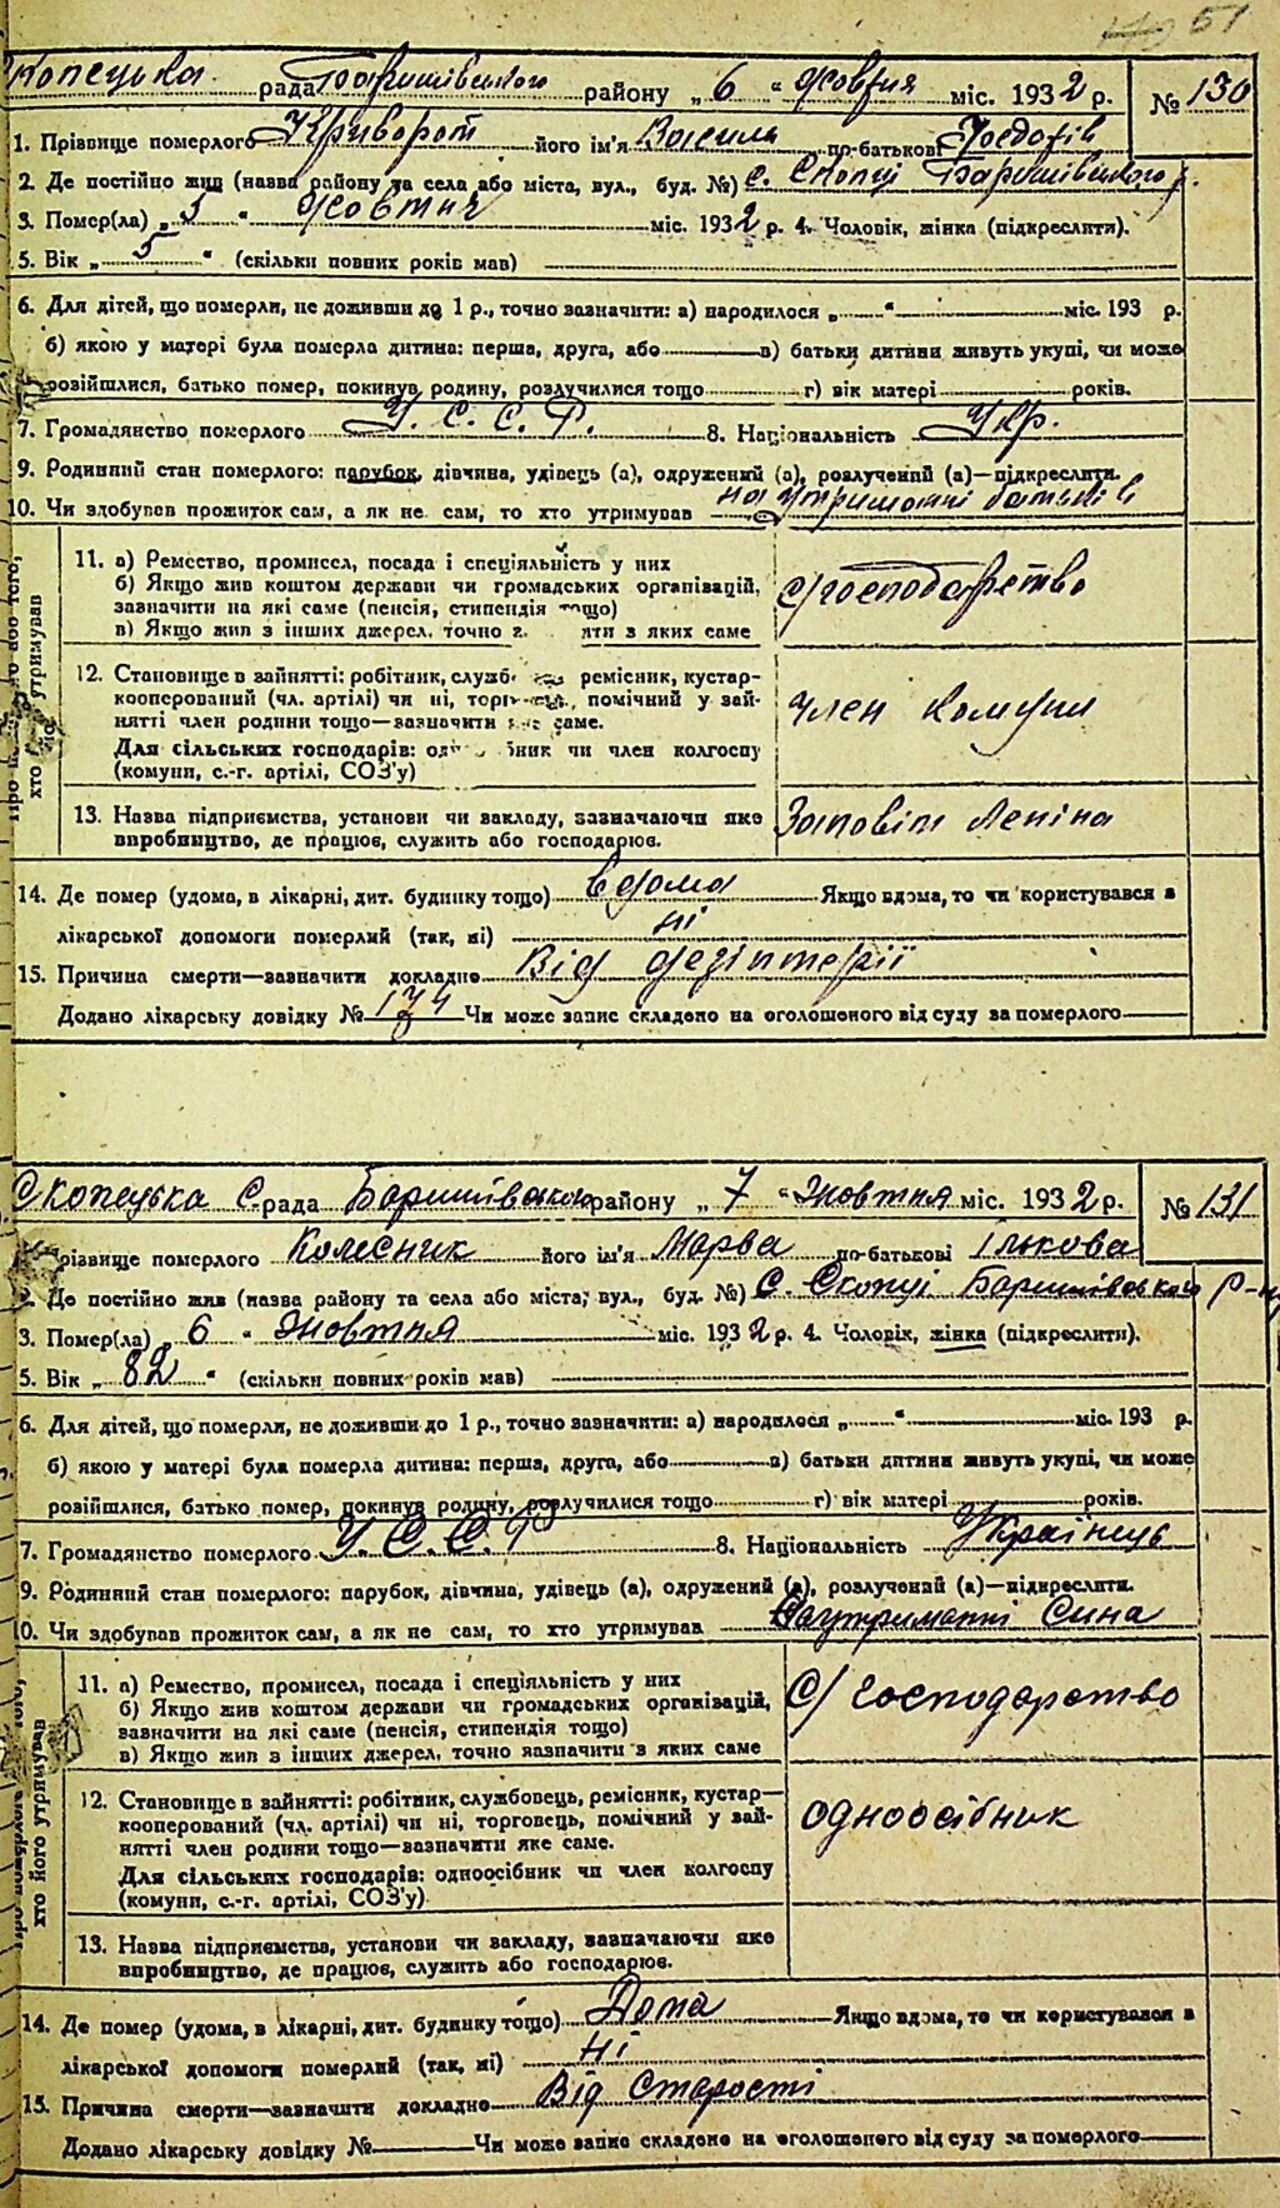 51
Скопецька рада Баришівського району „6“ жовтня міс. 1932 р. № 130
1. Прізвище померлого Криворот його ім'я Василь по-батькові
2. Де постійно жив (назва району та села або міста, вул., буд. №) с. Скопці Баришівського р.
3. Помер(ла) „5“ жовтня міс. 1932 р. 4. Чоловік, жінка (підкреслити).
5. Вік „5“ (скільки повних років мав)
6. Для дітей, що померли, не доживши до 1 р., точно зазначити: а) народилося „ “ міс. 193 р.
б) якою у матері була померла дитина: перша, друга, або в) батьки дитини живуть укупі, чи може
розійшлися, батько помер, покинув родину, розлучилися тощо г) вік матері років.
7. Громадянство померлого У. С. С. Р. 8. Національність Укр.
9. Родинний стан померлого: парубок, дівчина, удівець (а), одружений (а), розлучений (а)—підкреслити.
10. Чи здобував прожиток сам, а як не сам, то хто утримував на утриманні батьків
хто утримував
11. а) Ремество, промисел, посада і спеціяльність у них
б) Якщо жив коштом держави чи громадських організацій,
зазначити на які саме (пенсія, стипендія тощо)
в) Якщо жив з інших джерел, точно з яких саме
с/господарство
12. Становище в зайнятті: робітник, служб ремісник, кустар-
кооперований (чл. артілі) чи ні, торговець, помічний у зай-
нятті член родини тощо—зазначити яке саме.
Для сільських господарів: одноосібник чи член колгоспу
(комуни, с.-г. артілі, СОЗ'у)
Член комуни
13. Назва підприємства, установи чи закладу, зазначаючи яке
виробництво, де працює, служить або господарює.
Заповіт Леніна
14. Де помер (удома, в лікарні, дит. будинку тощо) вдома Якщо вдома, то чи користувався з
лікарської допомоги померлий (так, ні) ні
15. Причина смерти—зазначити докладно Від дезінтерії
Додано лікарську довідку № 174 Чи може запис складено на оголошеного від суду за померлого
Скопецька С. рада Баришівського району „7“ Жовтня міс. 1932 р. № 131
Прізвище померлого Колесник його ім'я Марва по-батькові Ількова
2. Де постійно жив (назва району та села або міста, вул., буд. №) С. Скопці Баришівського р-ну
3. Помер(ла) „6“ Жовтня міс. 1932 р. 4. Чоловік, жінка (підкреслити).
5. Вік „82“ (скільки повних років мав)
6. Для дітей, що померли, не доживши до 1 р., точно зазначити: а) народилося „ “ міс. 193 р.
б) якою у матері була померла дитина: перша, друга, або в) батьки дитини живуть укупі, чи може
розійшлися, батько помер, покинув родину, розлучилися тощо г) вік матері років.
7. Громадянство померлого У. С. С. Р 8. Національність Українець
9. Родинний стан померлого: парубок, дівчина, удівець (а), одружений (а), розлучений (а)—підкреслити.
10. Чи здобував прожиток сам, а як не сам, то хто утримував На утриманні Сина
хто його утримував
11. а) Ремество, промисел, посада і спеціяльність у них
б) Якщо жив коштом держави чи громадських організацій,
зазначити на які саме (пенсія, стипендія тощо)
в) Якщо жив з інших джерел, точно зазначити з яких саме
С/господарство
12. Становище в зайнятті: робітник, службовець, ремісник, кустар—
кооперований (чл. артілі) чи ні, торговець, помічний у зай-
нятті член родини тощо—зазначити яке саме.
Для сільських господарів: одноосібник чи член колгоспу
(комуни, с.-г. артілі, СОЗ'у)
одноосібник
13. Назва підприємства, установи чи закладу, зазначаючи яке
виробництво, де працює, служить або господарює.
14. Де помер (удома, в лікарні, дит. будинку тощо) Дома Якщо вдома, то чи користувався з
лікарської допомоги померлий (так, ні) ні
15. Причина смерти—зазначити докладно Від Старості
Додано лікарську довідку № Чи може запис складено на оголошеного від суду за померлого